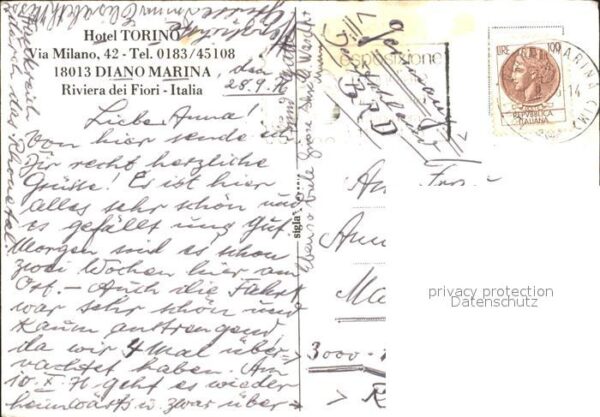 Hotel TORINO
Via Milano, 42 - Tel. 0183/45108
18013 DIANO MARINA
Riviera dei Fiori - Italia
den
28.9.76
Liebe Anna!
Von hier sende ich
Dir recht herzliche
Grüsse! Es ist hier
alles sehr schön und
es gefällt uns gut
Morgen sind es schon
zwei Wochen hier am
Ort. - Auch die Fahrt
war sehr schön und
kaum anstrengend,
da wir 4 mal über-
nachtet haben. Am
10. X. 76 geht es wieder
heimwärts u. zwar über
Frankreich
durch das Rhonetal
Ebenso viele Grüsse
sigla
esposizione
germania
BRD
LIRE 100
REPVBBLICA
ITALIANA
MARINA (IM)
14
Frau
3000
privacy protection
Datenschutz